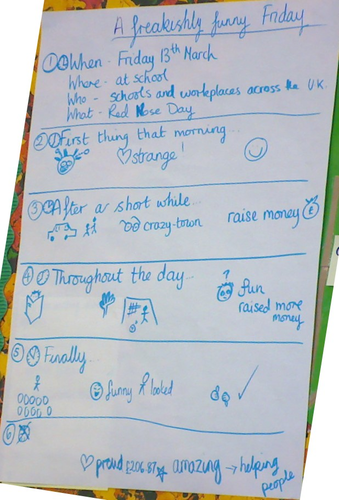 A freakishly funny Friday
1 When - Friday 13th March
Where - at school
Who - schools and workplaces across the UK.
What - Red Nose Day
2 First thing that morning...
strange!
3 After a short while...
crazy-town raise money £
4 Throughout the day...
? fun
raised more
money
5 Finally...
funny looked
6
proud £206.87 amazing → helping
people